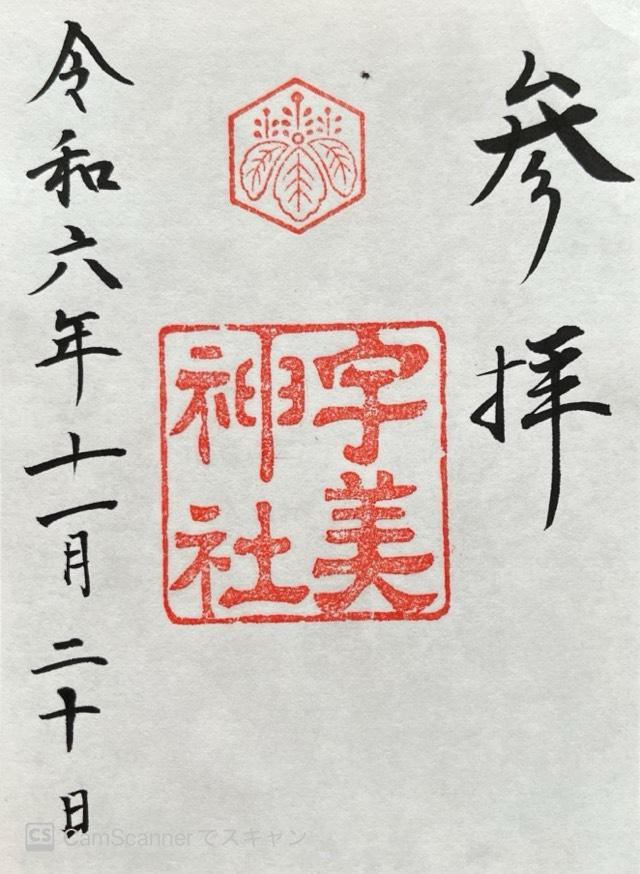 参拝
宇美
神社
令和六年十一月二十日
CS CamScannerでスキャン